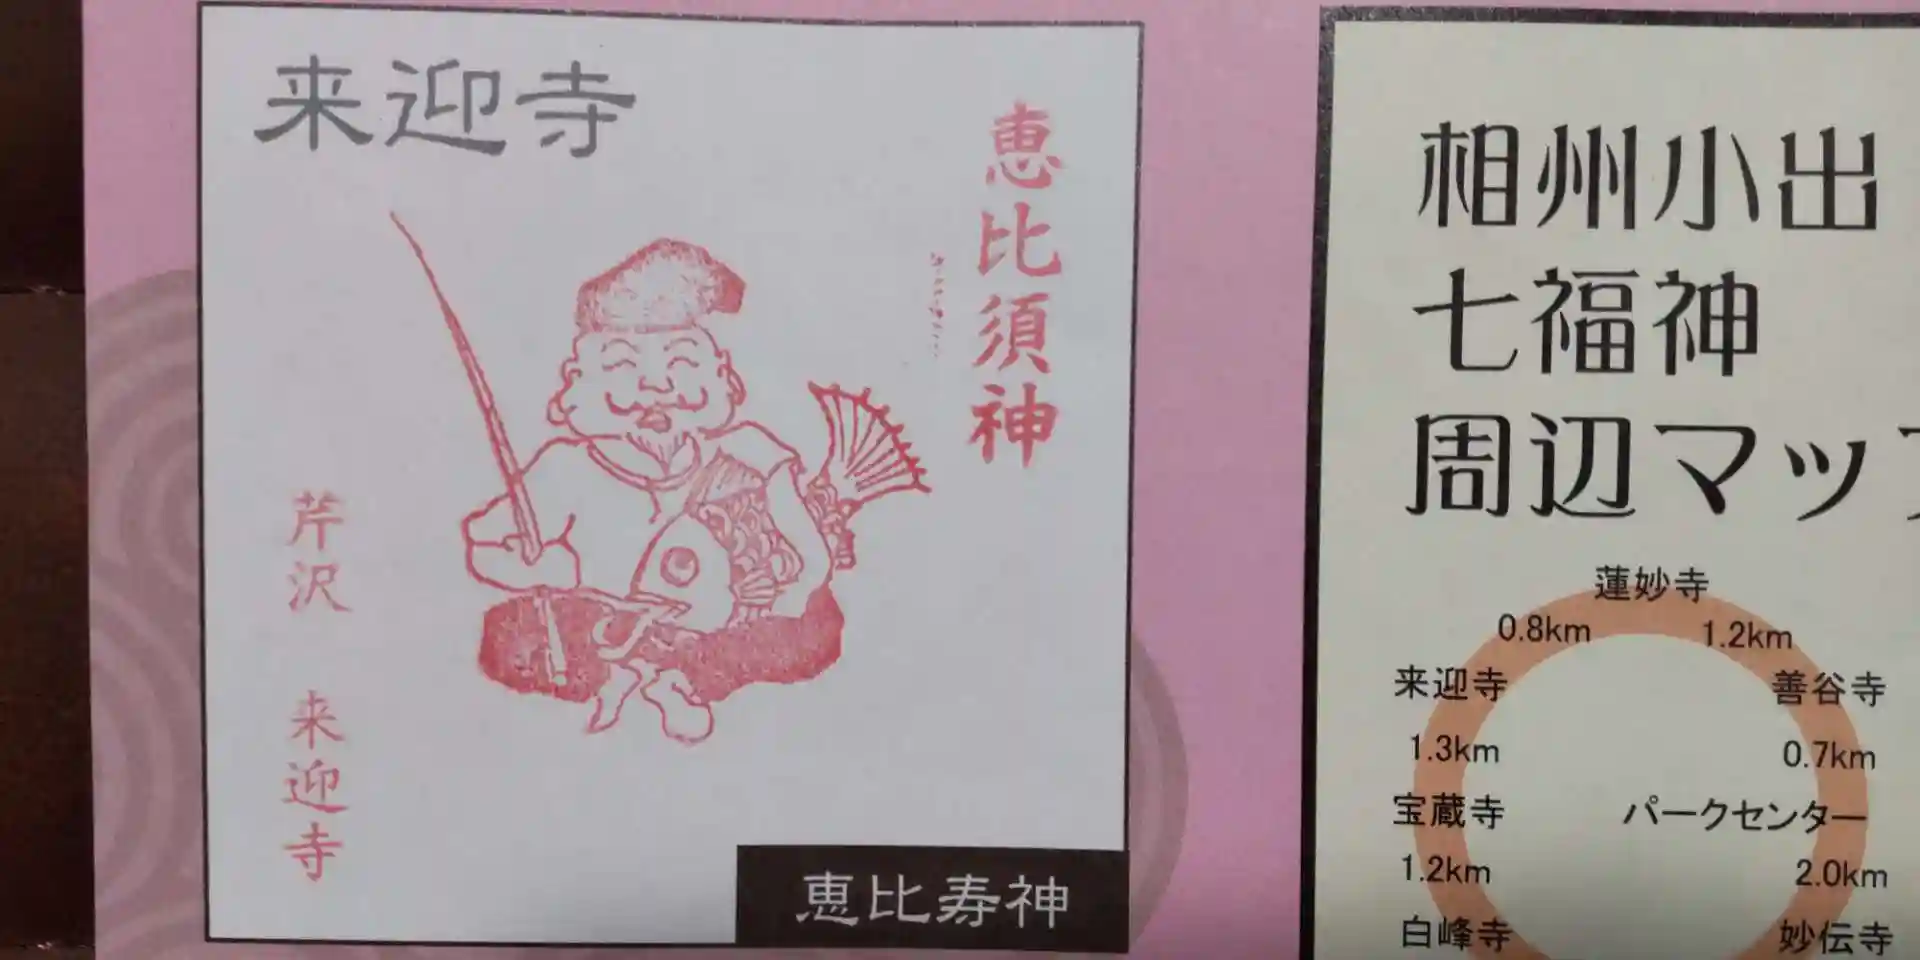 来迎寺
恵比須神
芹沢 来迎寺
恵比寿神
相州小出
七福神
周辺マップ
蓮妙寺
0.8km 1.2km
来迎寺 善谷寺
1.3km 0.7km
宝蔵寺 パークセンター
1.2km 2.0km
白峰寺 妙伝寺